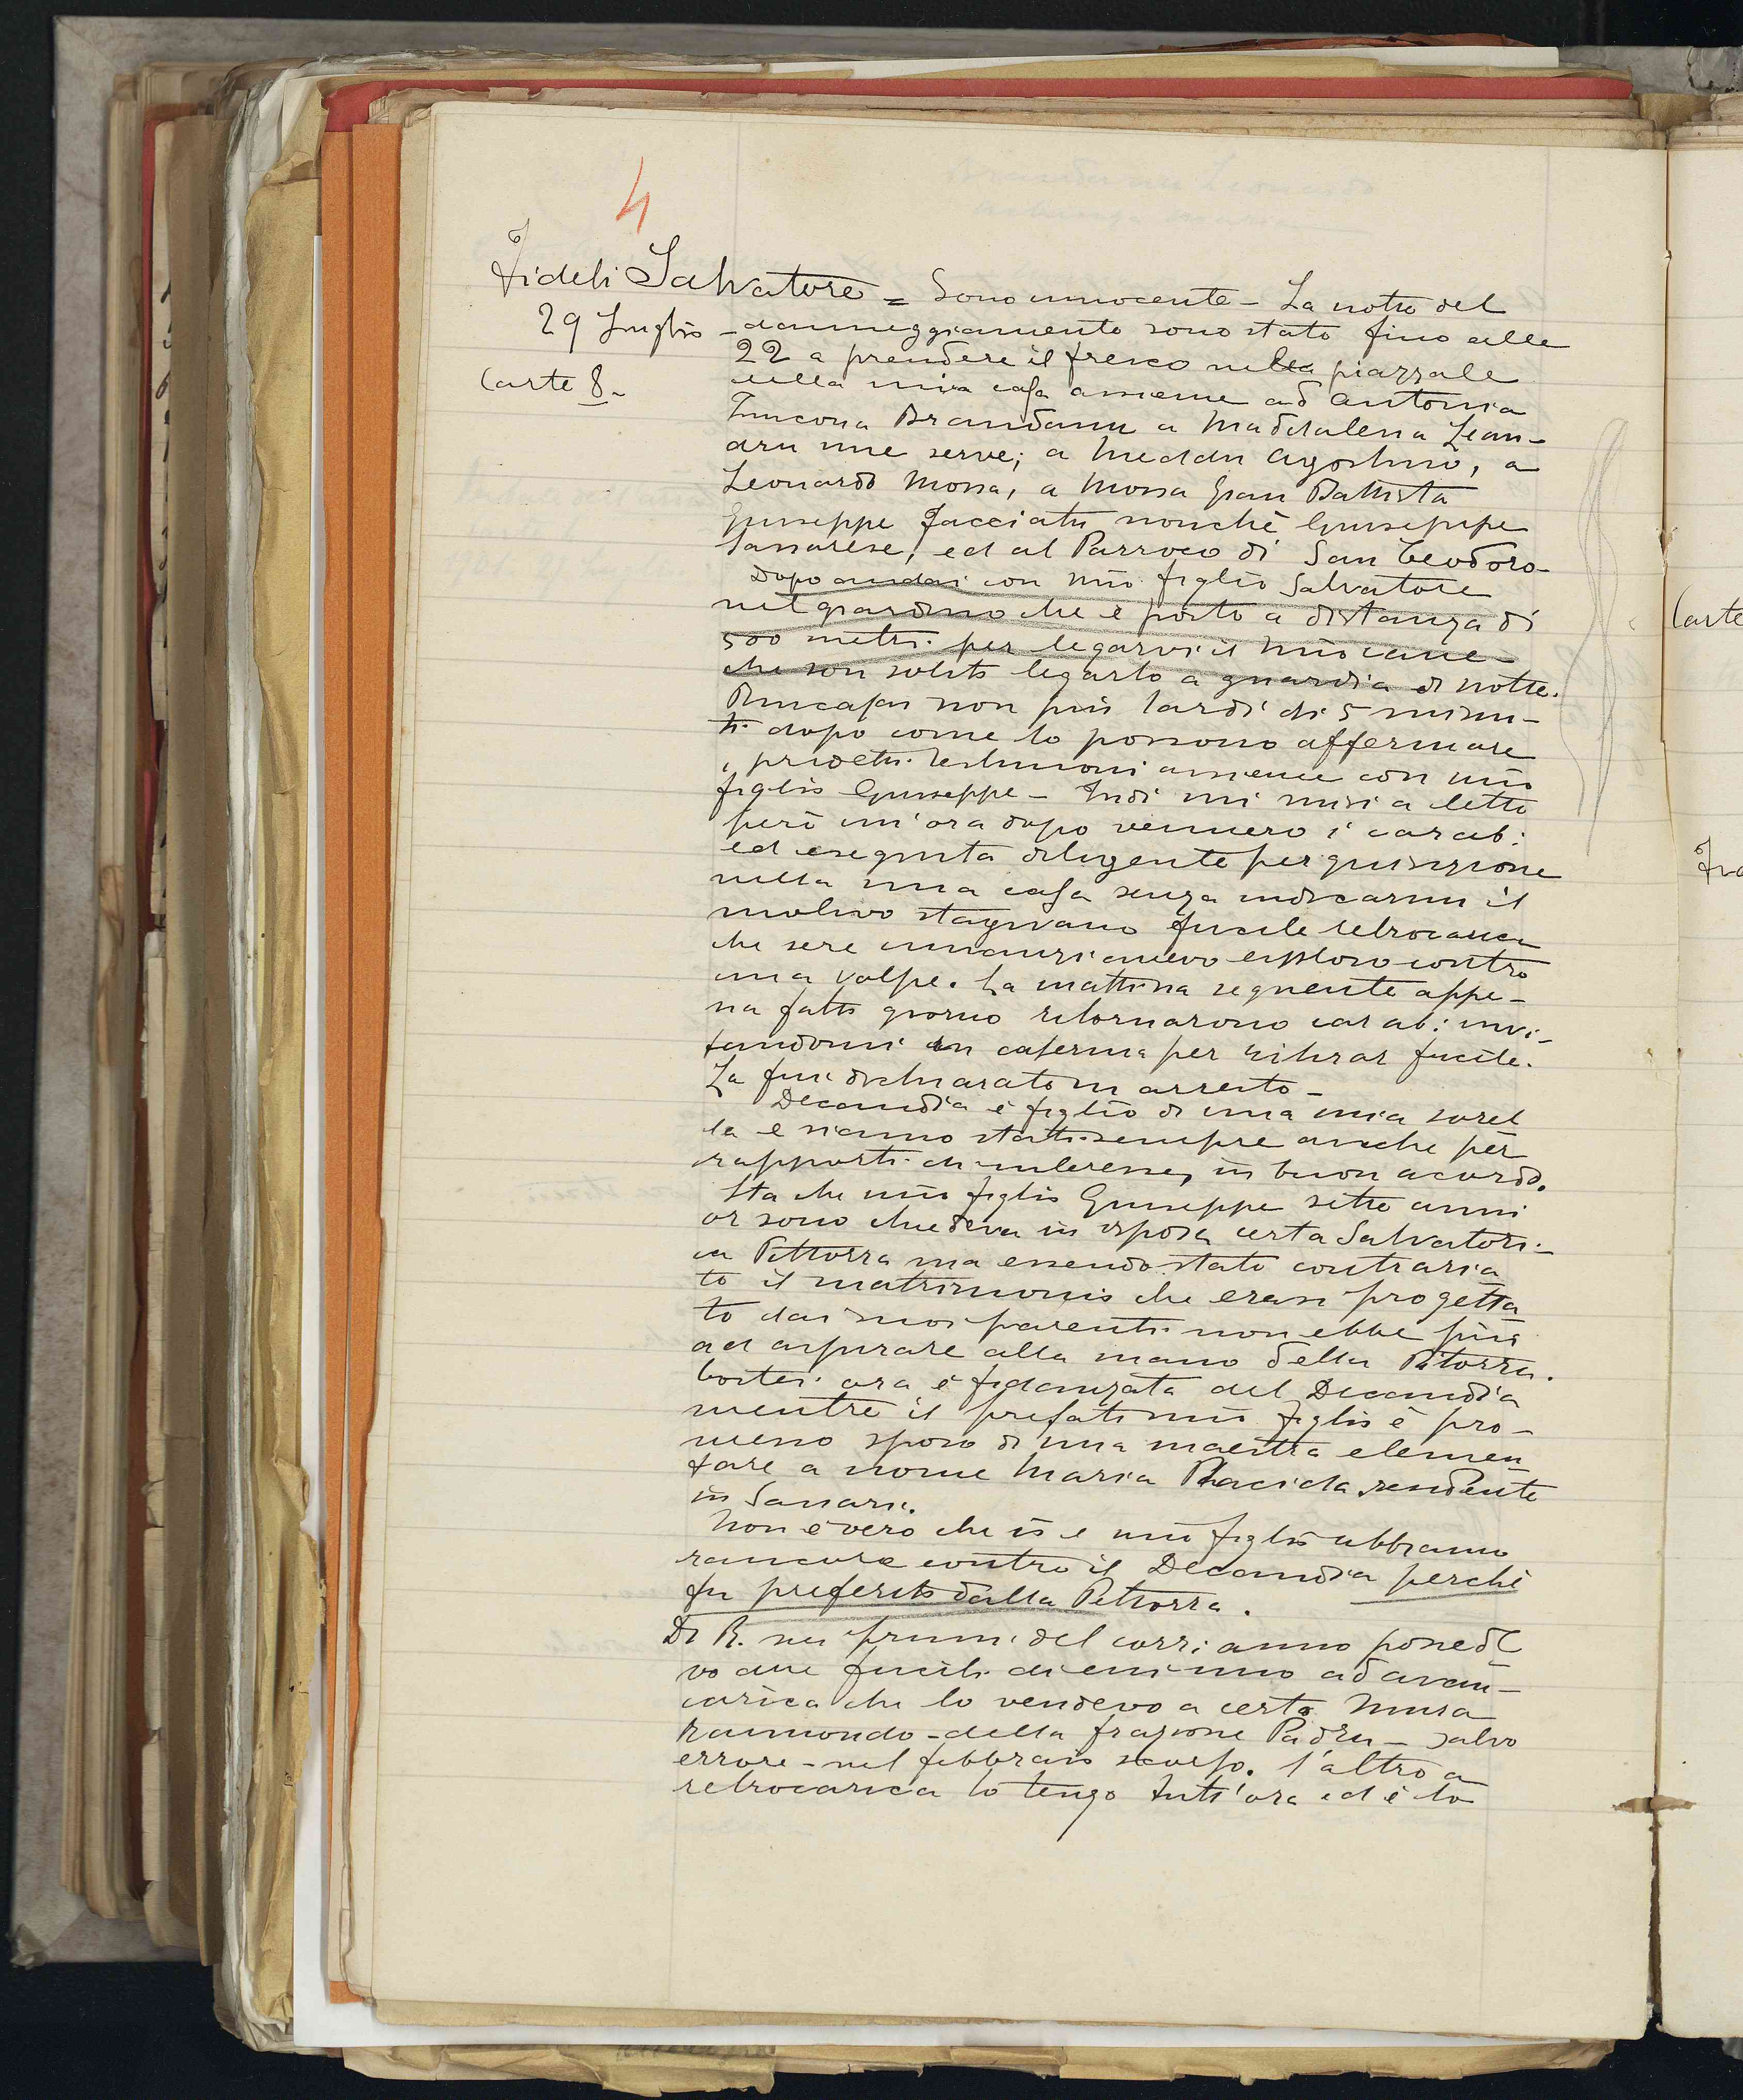 4
Fideli Salvatore = Sono innocente - La notte del
29 Luglio - danneggiamento sono stato fino alle
22 a prendere il fresco nella piazzale
Carte 8 -
della mia casa assieme ad Antonia
Brandanu a Maddalena Lean-
aru mie serve; a Meddu Agostino, a
Leonardo Mossa, a Mossa Gian Battista
Giuseppe nonchè Giuseppe
Sassarese, ed al Parroco di San Teodoro -
Dopo andai con mio figlio Salvatore
nel giardino che è posto a distanza di
500 metri per legarvi il mio cane -
che son solito legarlo a guardia di notte.
Rincasai non più tardi di 5 minu-
ti dopo come lo possono affermare
i predetti testimoni assieme con mio
figlio Giuseppe - Indi mi misi a letto
però un'ora dopo vennero i carab:
ed eseguita diligente perquisizione
nella mia casa senza indicarmi il
motivo fucile retrocarica
che sere innanzi avevo esploso contro
una volpe. La mattina seguente appe-
na fatto giorno ritornarono carab: invi-
tandomi in caserma per ritirar fucile.
La fui dichiarato in arresto -
Decandia è figlio di una mia sorel
la e siamo stati sempre anche per
rapporti di interesse, in buon acordo.
Sta che mio figlio Giuseppe sette anni
or sono chiedeva in isposa certa Salvatori-
ca Pittorra ma essendo stato contraria
to il matrimonio che erasi progetta
to dai suoi parenti non ebbe più
ad aspirare alla mano della Pitorra.
Costei ora è fidanzata del Decandia
mentre il prefato mio figlio è pro-
messo sposo di una maestra elemen
tare a nome Maria Placida residente
in Sassari.
Non è vero che io e mio figlio abbiamo
rancore contro il Decandia perchè
fu preferito dalla Pittorra.
Di R. nei primi del corr: anno possede
vo due fucili di cui uno ad avan-
carica che lo vendevo a certo Mura
Raimondo - della frazione Padru - salvo
errore - nel febbraio scorso. l'altro a
retrocarica lo tengo tutt'ora ed è lo
Carte